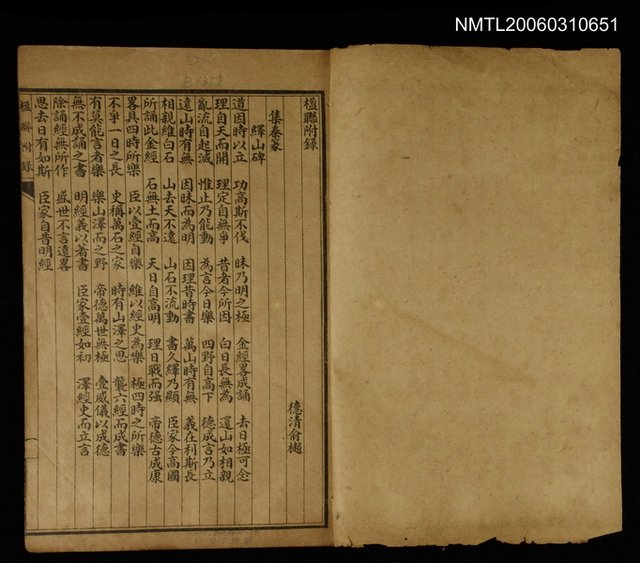 NMTL20060310651
楹聯附錄
德清俞樾
集秦篆
繹山碑
道因時以立 功高斯不伐 昧乃明之極 金經畧成誦 去日極可念
理自天而開 理定自無爭 昔者今所因 白日長無為 還山如相親
亂流自起滅 惟止乃能動 為言今日樂 四野自高下 德成言乃立
遠山時有無 因昧而為明 因理昔時書 萬山時有無 義在利斯長
相親維白石 山去天不遠 山石不流動 書久繹乃顯 臣家今高國
所誦此金經 石無土而高 天日自高明 理日戰而强 帝德古成康
畧具四時所樂 臣以壹經自樂 維以經史為樂 極四時之所樂
不爭一日之長 史稱萬石之家 時有山澤之思 襲六經而成書
有莫能言者樂 樂山澤而之野 帝德萬世無極 壹威儀以成德
無不成誦之書 明經義以著書 臣家壹經如初 澤經史而立言
除誦經無所作 盛世不言遠畧
思去日有如斯 臣家自昔明經
楹聯附錄
一